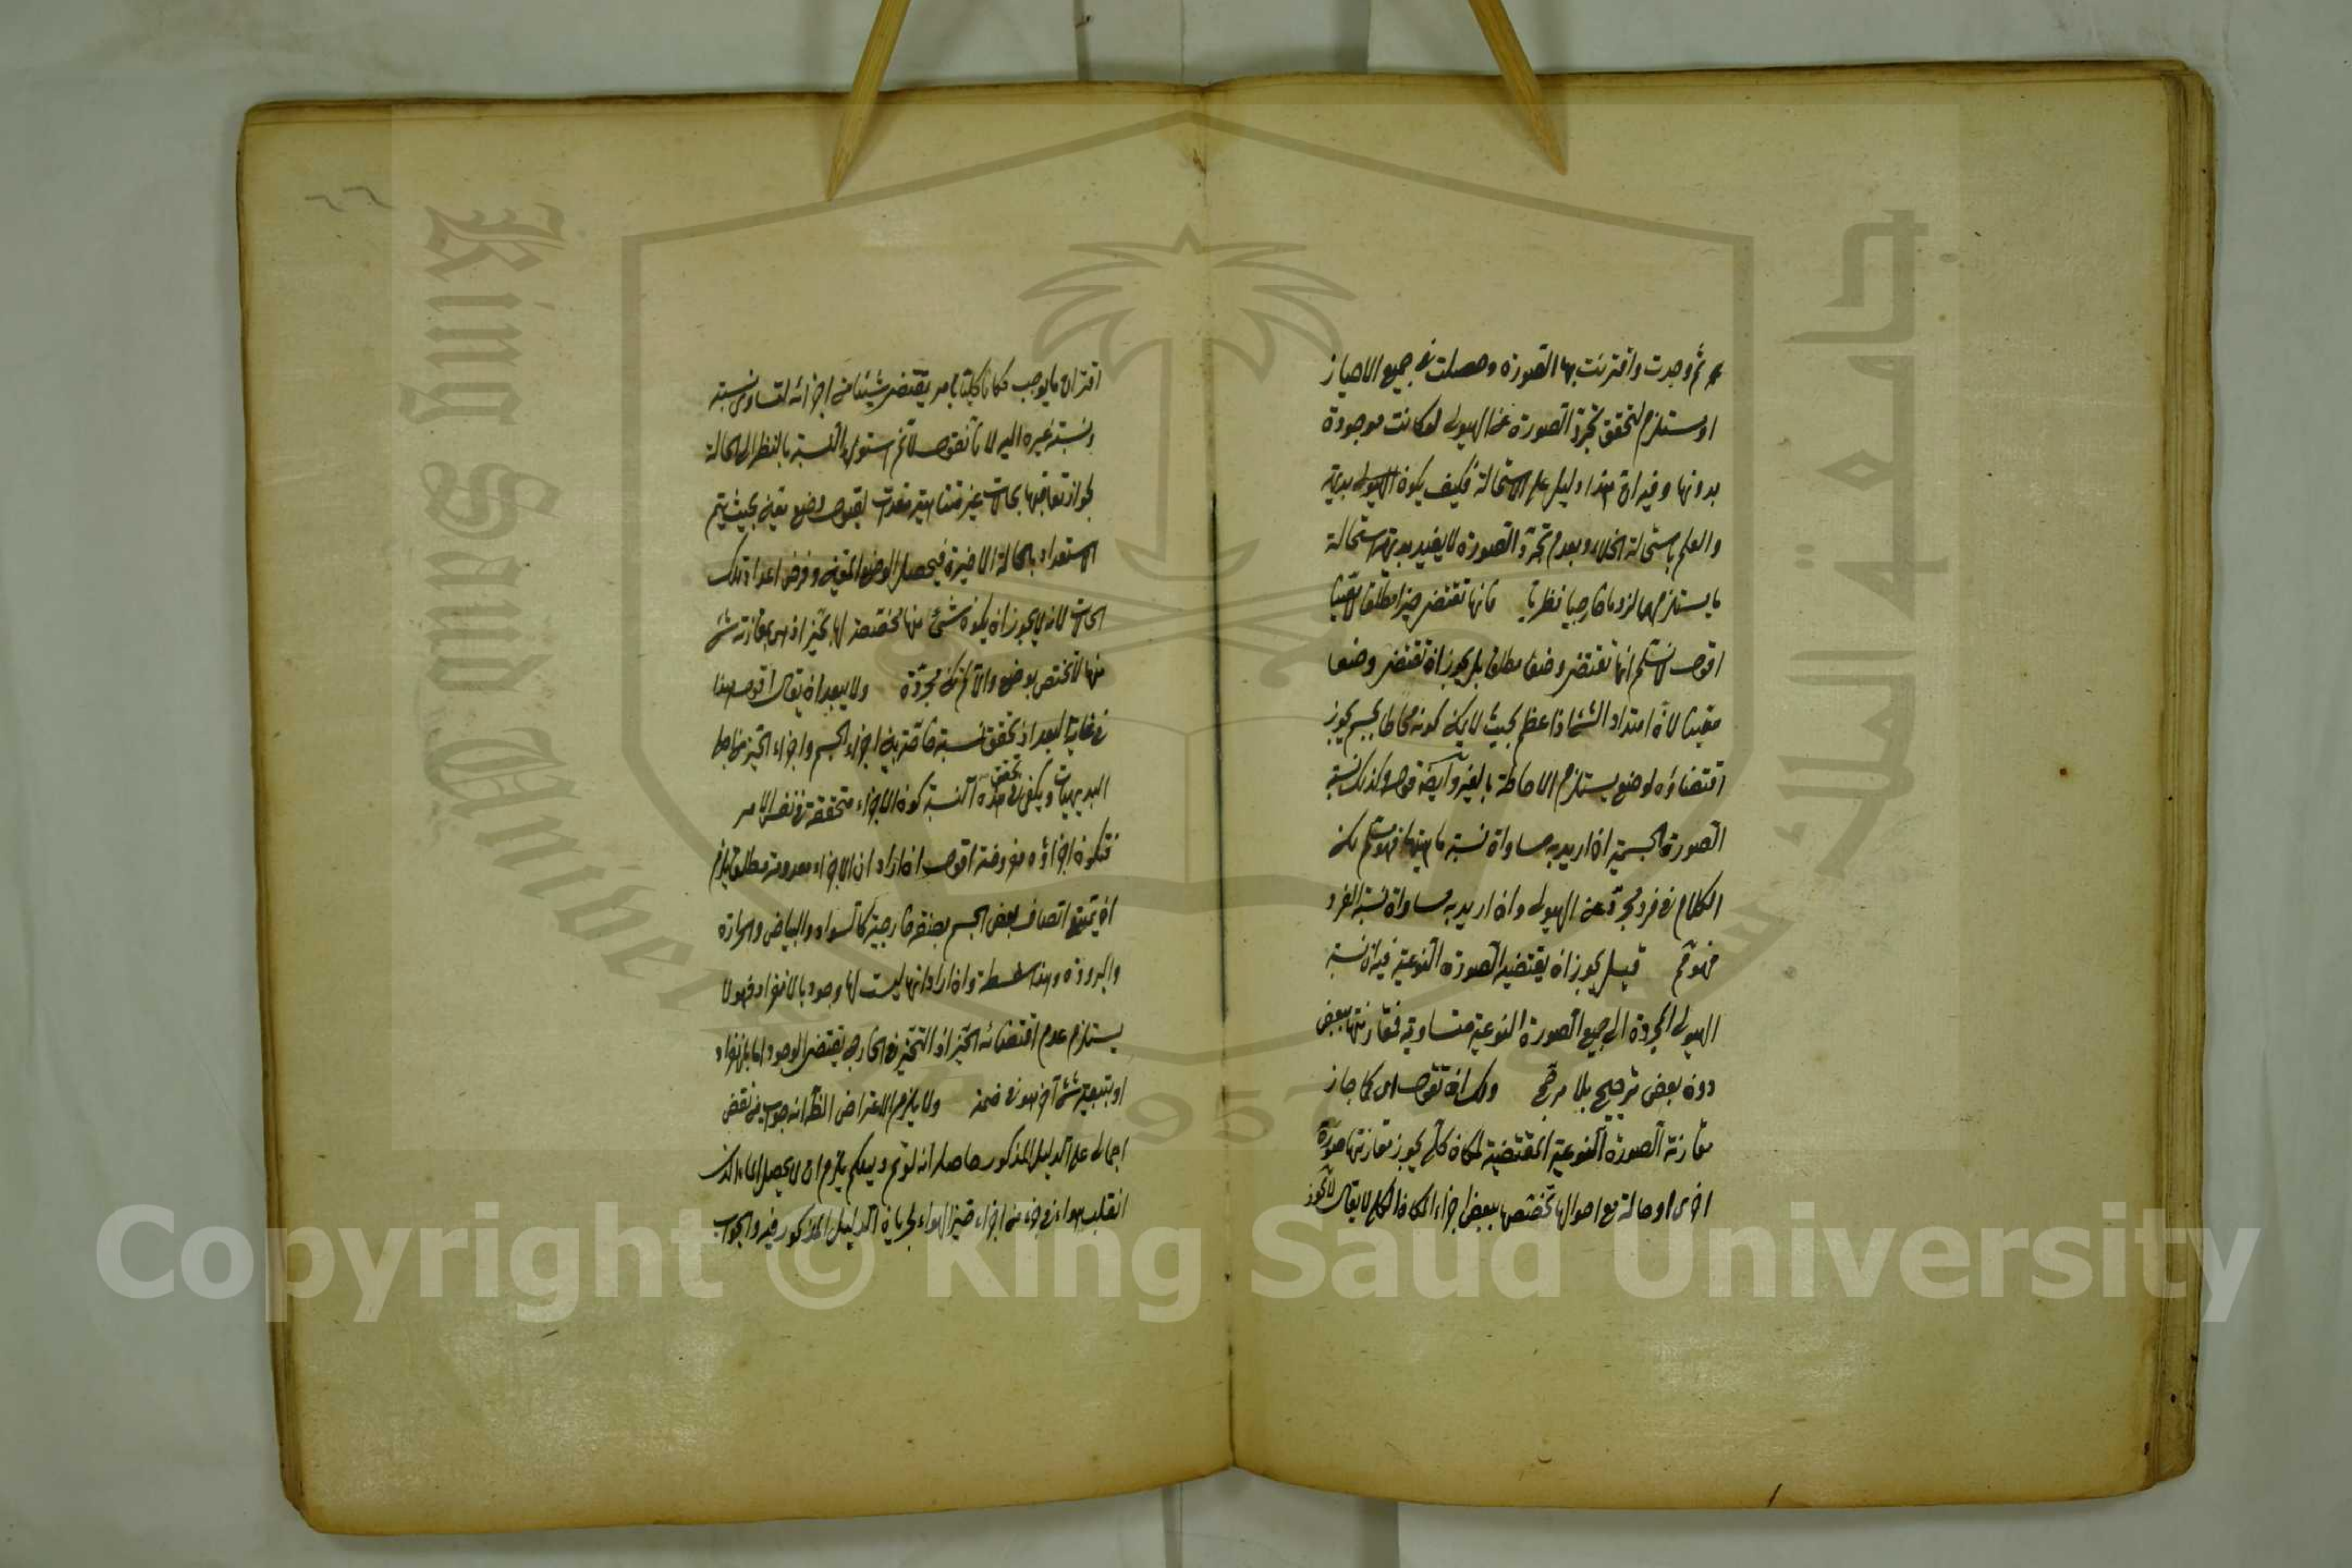 ثم وجدت واقترنت بها الصورة وحصلت في جميع الاحياز
او يستلزم لتحقق تجرد الصورة عن الهيولى لو كانت موجودة
بدونها وفيه ان هذا دليل على الاستحالة فكيف يكون الهيولى بديهية
والعلم باستحالة الخلاء وبعدم تجرد الصورة لا يفيد بديهة استحالة
ما يستلزمهما لزوما خارجيا نظريا فانها تقتضي حيزا مطلقا لا معينا
اقول لا نسلم انها تقتضي وضعا مطلقا بل يجوز ان تقتضي وضعا
معينا لان امتداد الشئ اذا عظم بحيث لا يمكن كونه محاطا بجسم يجوز
اقتضاؤه لوضع يستلزم الاحاطة بالغير وايضا قوله وكذلك نسبة
الصورة الجسمية ان اريد به مساواة نسبة ماهيتها فهو مسلم لكن
الكلام في فرد مجرد عن الهيولى وان اريد به مساواة نسبة الفرد
فهو مم قيل يجوز ان يقتضيه الصورة النوعية فيه ان نسبة
الهيولى المجردة الى جميع الصورة النوعية متساوية فمقارنتها ببعض
دون بعض ترجيح بلا مرجح ولك ان تقول اى كما جاز
مقارنة الصورة النوعية المقتضية لمكان كلى يجوز مقارنتها صورة
اخرى او حالة مع احوالها تخصها ببعض اجزاء المكان الكلى لا يقال لا يجوز
اقتران ما يوجب مكانا كليا بامر يقتضي شيئا من اجزائه لتساوى نسبته
ونسبة غيره اليه لانا نقول لا نم استواء النسبة بالنظر الى الحالة
لجواز تعاقبها بحالات غير متناهية معدة لقبول وضع معين بحيث يتم
الاستعداد بالحالة الاخيرة فيحصل الوضع المعين وفرض اعداد تلك
الحالات لانه لا يجوز ان يكون شئ منها مختصة لها بحيز اذ هى بمقارنة شئ
منها لا تختص بوضع والا لم تكن مجردة ولا يبعد ان يقال اقول هذا
في غاية البعد اذ تحقق نسبة خاصة بين اجزاء الجسم واجزاء الحيز من اجلى
البديهيات ويكفى في تحقق هذه النسبة كون الاجزاء متحققة في نفس الامر
فتكون اجزاؤه مفروضة اقول ان اراد ان الاجزاء معدومة مطلقا يلزم
ان يمتنع اتصاف بعض الجسم بصفة خارجية كالسواد والبياض والحرارة
والبرودة وهذا سفسطة وان اراد انها ليست لها وجود بالانفراد فهو لا
يستلزم عدم اقتضائه الحيز اذ التحيز في الخارج يقتضي الوجود اما بالانفراد
او بتبعية شئ آخر هو في ضمنه ولا يلزم الاعتراض الظ انه جواب عن نقض
اجمالى على الدليل المذكور حاصله انه لو تم دليلكم يلزم ان لا يحصل الماء الذى
انقلب هواء في جزء من اجزاء حيز الهواء لجريان الدليل المذكور فيه والجواب